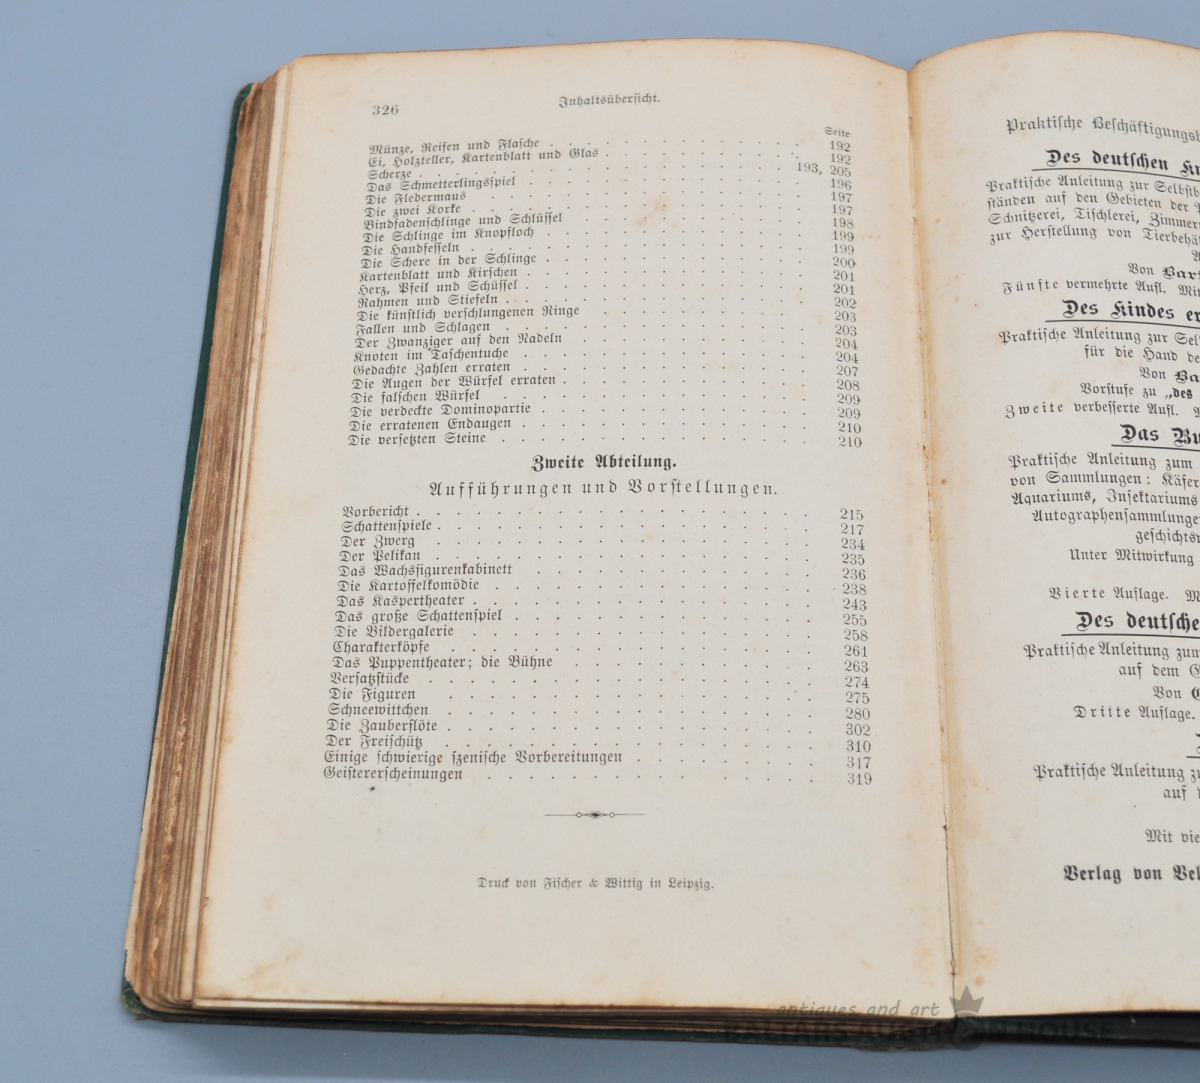 326
Inhaltsübersicht.
Seite
Münze, Reifen und Flasche . . . . . . . . . . . 192
Ei, Holzteller, Kartenblatt und Glas . . . . . . . . . 192
Scherze . . . . . . . . . . . . . . . . . 193, 205
Das Schmetterlingsspiel . . . . . . . . . . . . 196
Die Fledermaus . . . . . . . . . . . . . . 197
Die zwei Korke . . . . . . . . . . . . . . 197
Bindfadenschlinge und Schlüssel . . . . . . . . . . 198
Die Schlinge im Knopfloch . . . . . . . . . . . 199
Die Handfesseln . . . . . . . . . . . . . . 199
Die Schere in der Schlinge . . . . . . . . . . . 200
Kartenblatt und Kirschen . . . . . . . . . . . . 201
Herz, Pfeil und Schüssel . . . . . . . . . . . . 201
Rahmen und Stiefeln . . . . . . . . . . . . . 202
Die künstlich verschlungenen Ringe . . . . . . . . . 203
Fallen und Schlagen . . . . . . . . . . . . . 203
Der Zwanziger auf den Nadeln . . . . . . . . . . 204
Knoten im Taschentuche . . . . . . . . . . . . 204
Gedachte Zahlen erraten . . . . . . . . . . . . 207
Die Augen der Würfel erraten . . . . . . . . . . 208
Die falschen Würfel . . . . . . . . . . . . . 209
Die verdeckte Dominopartie . . . . . . . . . . . 209
Die erratenen Endaugen . . . . . . . . . . . . 210
Die versetzten Steine . . . . . . . . . . . . . 210
Zweite Abteilung.
Aufführungen und Vorstellungen.
Vorbericht . . . . . . . . . . . . . . . . 215
Schattenspiele . . . . . . . . . . . . . . . 217
Der Zwerg . . . . . . . . . . . . . . . 234
Der Pelikan . . . . . . . . . . . . . . . 235
Das Wachsfigurenkabinett . . . . . . . . . . . . 236
Die Kartoffelkomödie . . . . . . . . . . . . . 238
Das Kaspertheater . . . . . . . . . . . . . . 243
Das große Schattenspiel . . . . . . . . . . . . 255
Die Bildergalerie . . . . . . . . . . . . . . 258
Charakterköpfe . . . . . . . . . . . . . . . 261
Das Puppentheater; die Bühne . . . . . . . . . . 263
Versatzstücke . . . . . . . . . . . . . . . 274
Die Figuren . . . . . . . . . . . . . . . 275
Schneewittchen . . . . . . . . . . . . . . . 280
Die Zauberflöte . . . . . . . . . . . . . . 302
Der Freischütz . . . . . . . . . . . . . . . 310
Einige schwierige szenische Vorbereitungen . . . . . . . . 317
Geistererscheinungen . . . . . . . . . . . . . 319
Druck von Fischer & Wittig in Leipzig.
Praktische Beschäftigungsb
Des deutschen Kn
Praktische Anleitung zur Selbstb
ständen auf den Gebieten der P
Schnitzerei, Tischlerei, Zimmer
zur Herstellung von Tierbehä
Von
Fünfte vermehrte Aufl. Mit
Des Kindes er
Praktische Anleitung zur Sel
für die Hand de
Von Ba
Vorstufe zu „des
Zweite verbesserte Aufl.
Das Bu
Praktische Anleitung zum
von Sammlungen: Käfer
Aquariums, Insektariums
Autographensammlunge
geschichts
Unter Mitwirkung
Vierte Auflage. M
Des deutsche
Praktische Anleitung zum
auf dem G
Von
Dritte Auflage.
Praktische Anleitung zu
auf
Mit vie
Verlag von Vel
antiques and art
BALTARS AUCTION HOUSE